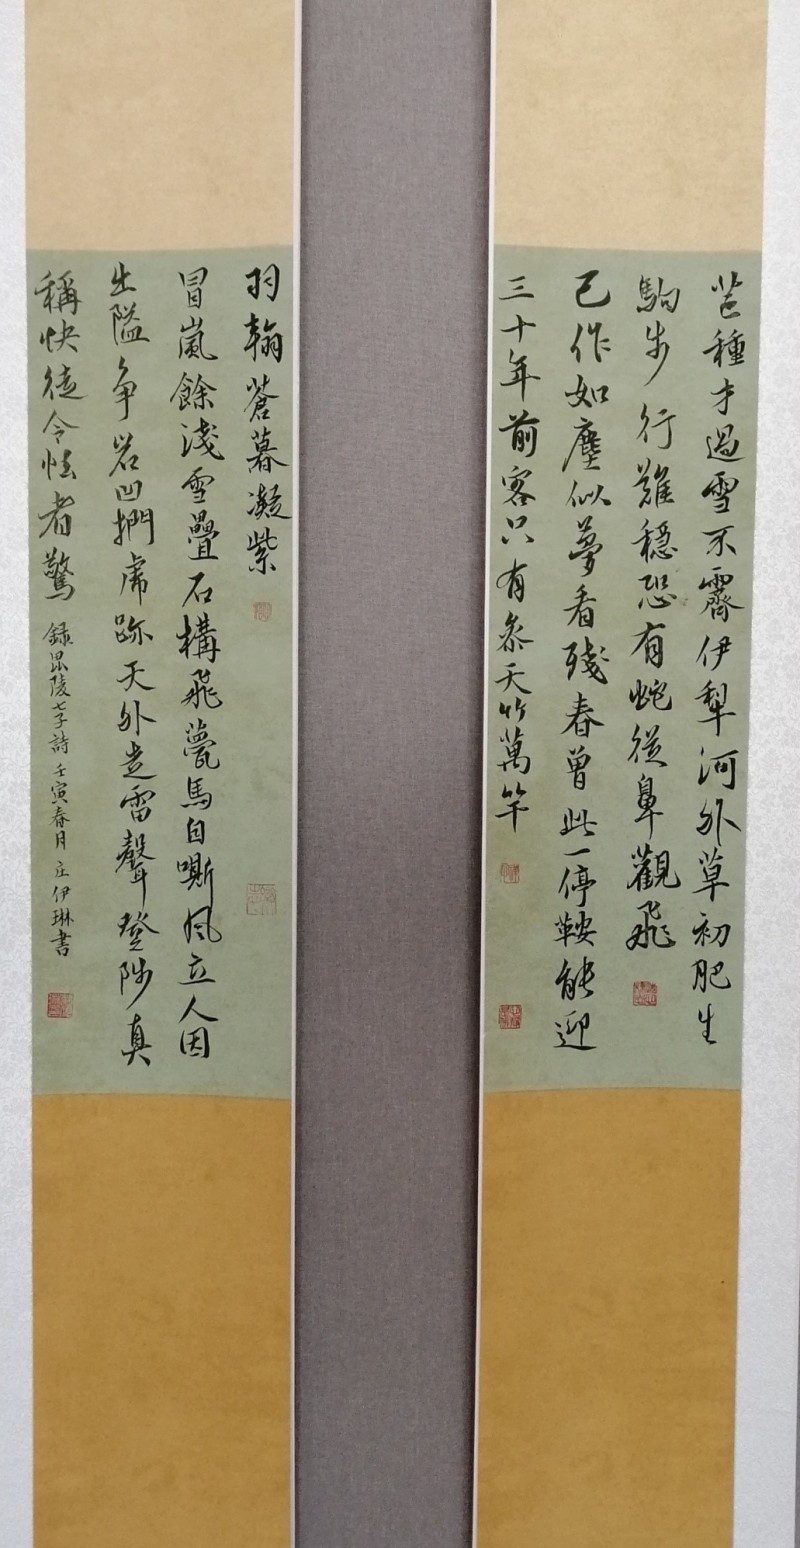 芒種才過雪不霽伊犁河外草初肥生
駒步行難穩恐有蛇從鼻觀飛
已作如塵似夢看殘春曾此一停鞍能迎
三十年前客只有參天竹萬竿
羽翰蒼暮凝紫
冒嵐餘淺雪疊石構飛甍馬自嘶風立人因
出隘爭岩凹捫虎跡天外走雷聲登陟真
稱快徒令怯者驚
錄毘陵七子詩壬寅春月庄伊琳書